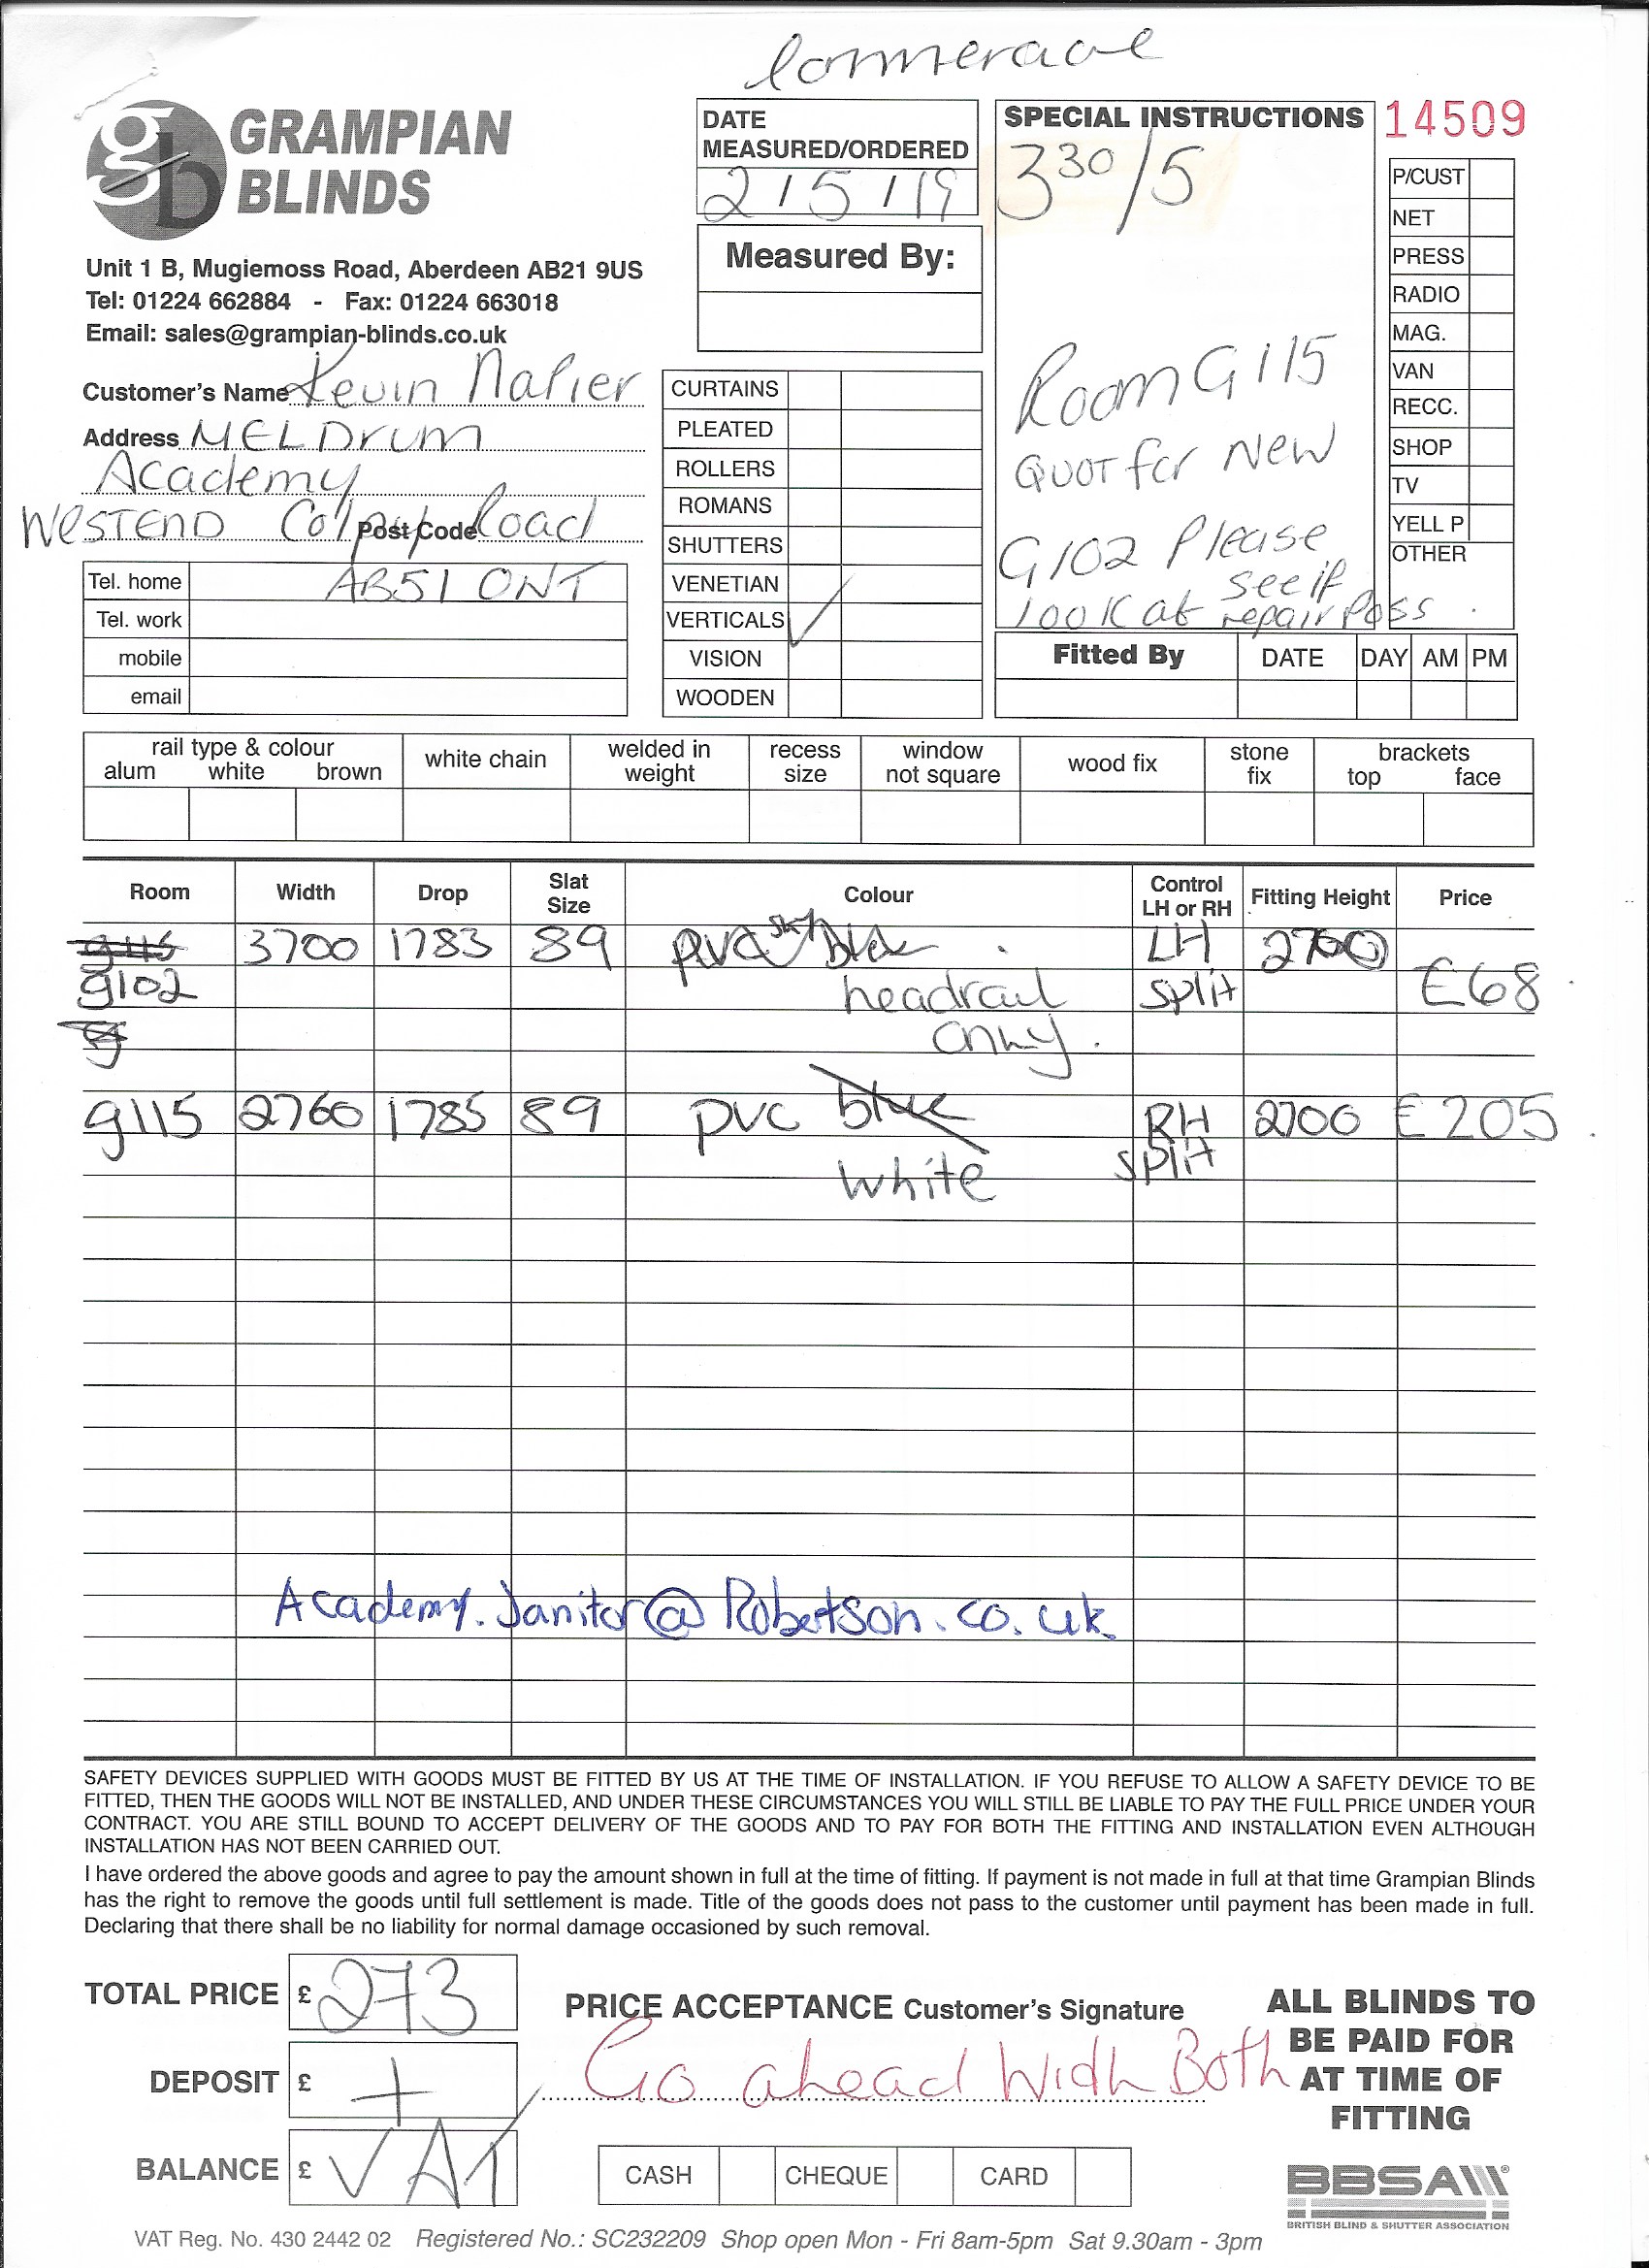 Commercial
GRAMPIAN
BLINDS
Unit 1 B, Mugiemoss Road, Aberdeen AB21 9US
Tel: 01224 662884 - Fax: 01224 663018
Email: sales@grampian-blinds.co.uk
Customer's Name Kevin Napier
Address MELDrum
Academy
WESTEND Colpy Road
Post Code
Tel. home AB51 0NT
Tel. work
mobile
email
DATE
MEASURED/ORDERED
2/5/19
Measured By:
CURTAINS
PLEATED
ROLLERS
ROMANS
SHUTTERS
VENETIAN
VERTICALS ✓
VISION
WOODEN
SPECIAL INSTRUCTIONS
3 30/5
Room G115
QUOT for New
G102 Please
see if
look at repair Poss
14509
P/CUST
NET
PRESS
RADIO
MAG.
VAN
RECC.
SHOP
TV
YELL P
OTHER
Fitted By DATE DAY AM PM
rail type & colour
alum white brown
white chain
welded in
weight
recess
size
window
not square
wood fix
stone
fix
brackets
top face
Room Width Drop Slat Size Colour Control LH or RH Fitting Height Price
g115 3700 1783 89 pvc sky blue LH 2700
g102 headrail split £68
g only.
g115 2760 1785 89 pvc blue RH 2700 £205
white split
Academy.Janitor@Robertson.co.uk
SAFETY DEVICES SUPPLIED WITH GOODS MUST BE FITTED BY US AT THE TIME OF INSTALLATION. IF YOU REFUSE TO ALLOW A SAFETY DEVICE TO BE
FITTED, THEN THE GOODS WILL NOT BE INSTALLED, AND UNDER THESE CIRCUMSTANCES YOU WILL STILL BE LIABLE TO PAY THE FULL PRICE UNDER YOUR
CONTRACT. YOU ARE STILL BOUND TO ACCEPT DELIVERY OF THE GOODS AND TO PAY FOR BOTH THE FITTING AND INSTALLATION EVEN ALTHOUGH
INSTALLATION HAS NOT BEEN CARRIED OUT.
I have ordered the above goods and agree to pay the amount shown in full at the time of fitting. If payment is not made in full at that time Grampian Blinds
has the right to remove the goods until full settlement is made. Title of the goods does not pass to the customer until payment has been made in full.
Declaring that there shall be no liability for normal damage occasioned by such removal.
TOTAL PRICE £ 273
DEPOSIT £ +
BALANCE £ VAT
PRICE ACCEPTANCE Customer's Signature
Go ahead With Both
CASH CHEQUE CARD
ALL BLINDS TO
BE PAID FOR
AT TIME OF
FITTING
BBSA
BRITISH BLIND & SHUTTER ASSOCIATION
VAT Reg. No. 430 2442 02 Registered No.: SC232209 Shop open Mon - Fri 8am-5pm Sat 9.30am - 3pm